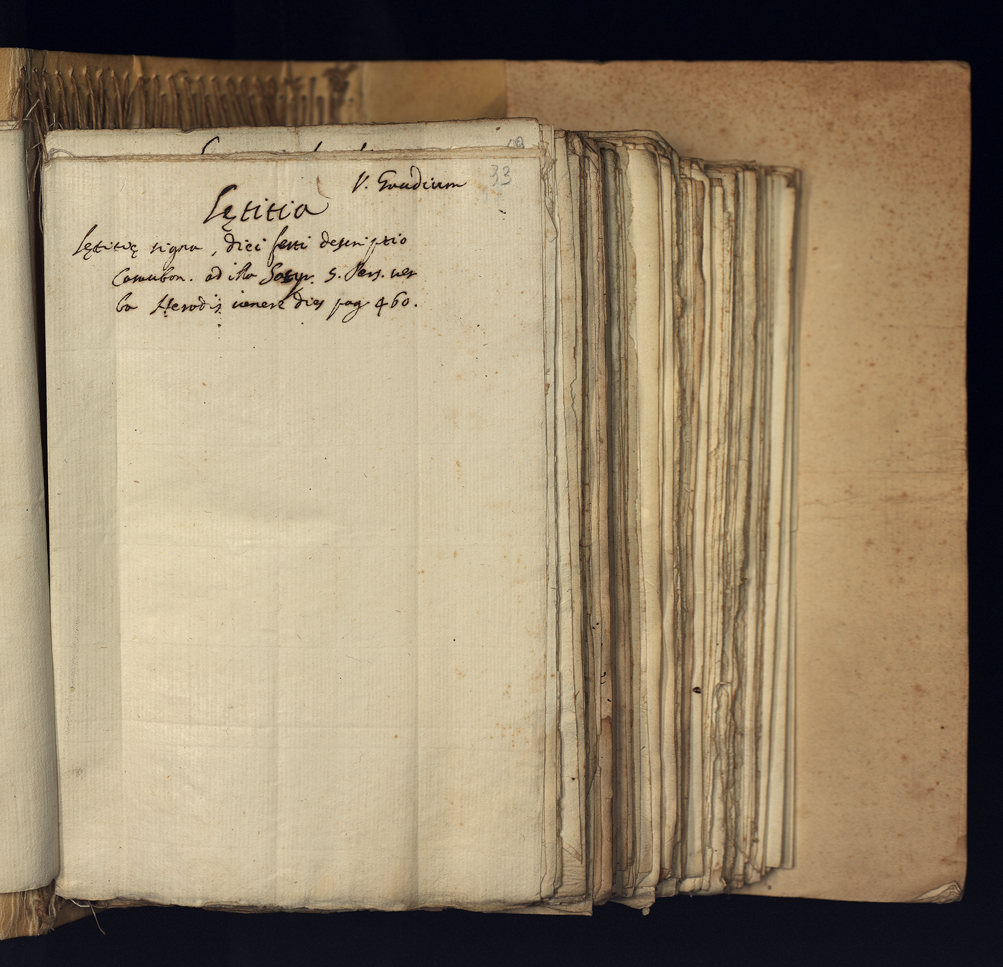 V. Gaudium 33
Lętitia
Lętitię signa, diei festi descriptio
Casaubon. ad illa Satyr. 5. Pers. ver
ba Herodis venere dies pag 460.